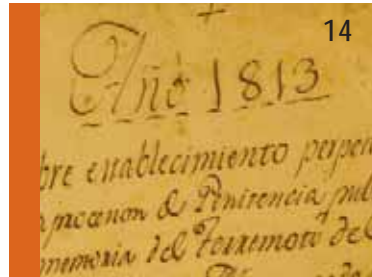 14
Año 1813
bre establecimiento perpen
procecion de Penitencia pub
memoria del Terremoto del